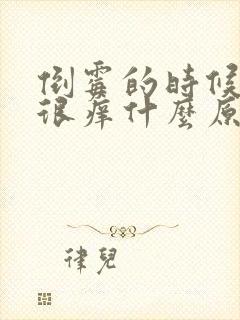 倒霉的時候
很痒什麼原
律兒